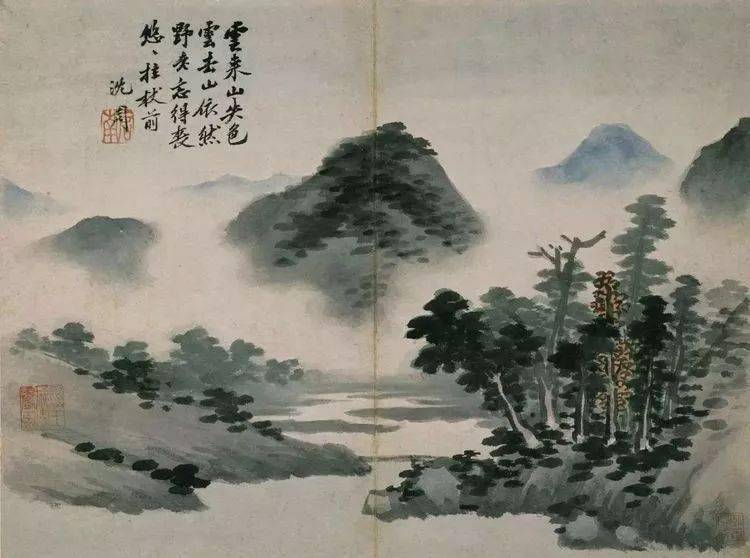 雲來山失色
雲去山依然
野老忘得喪
悠、拄杖前
沈周